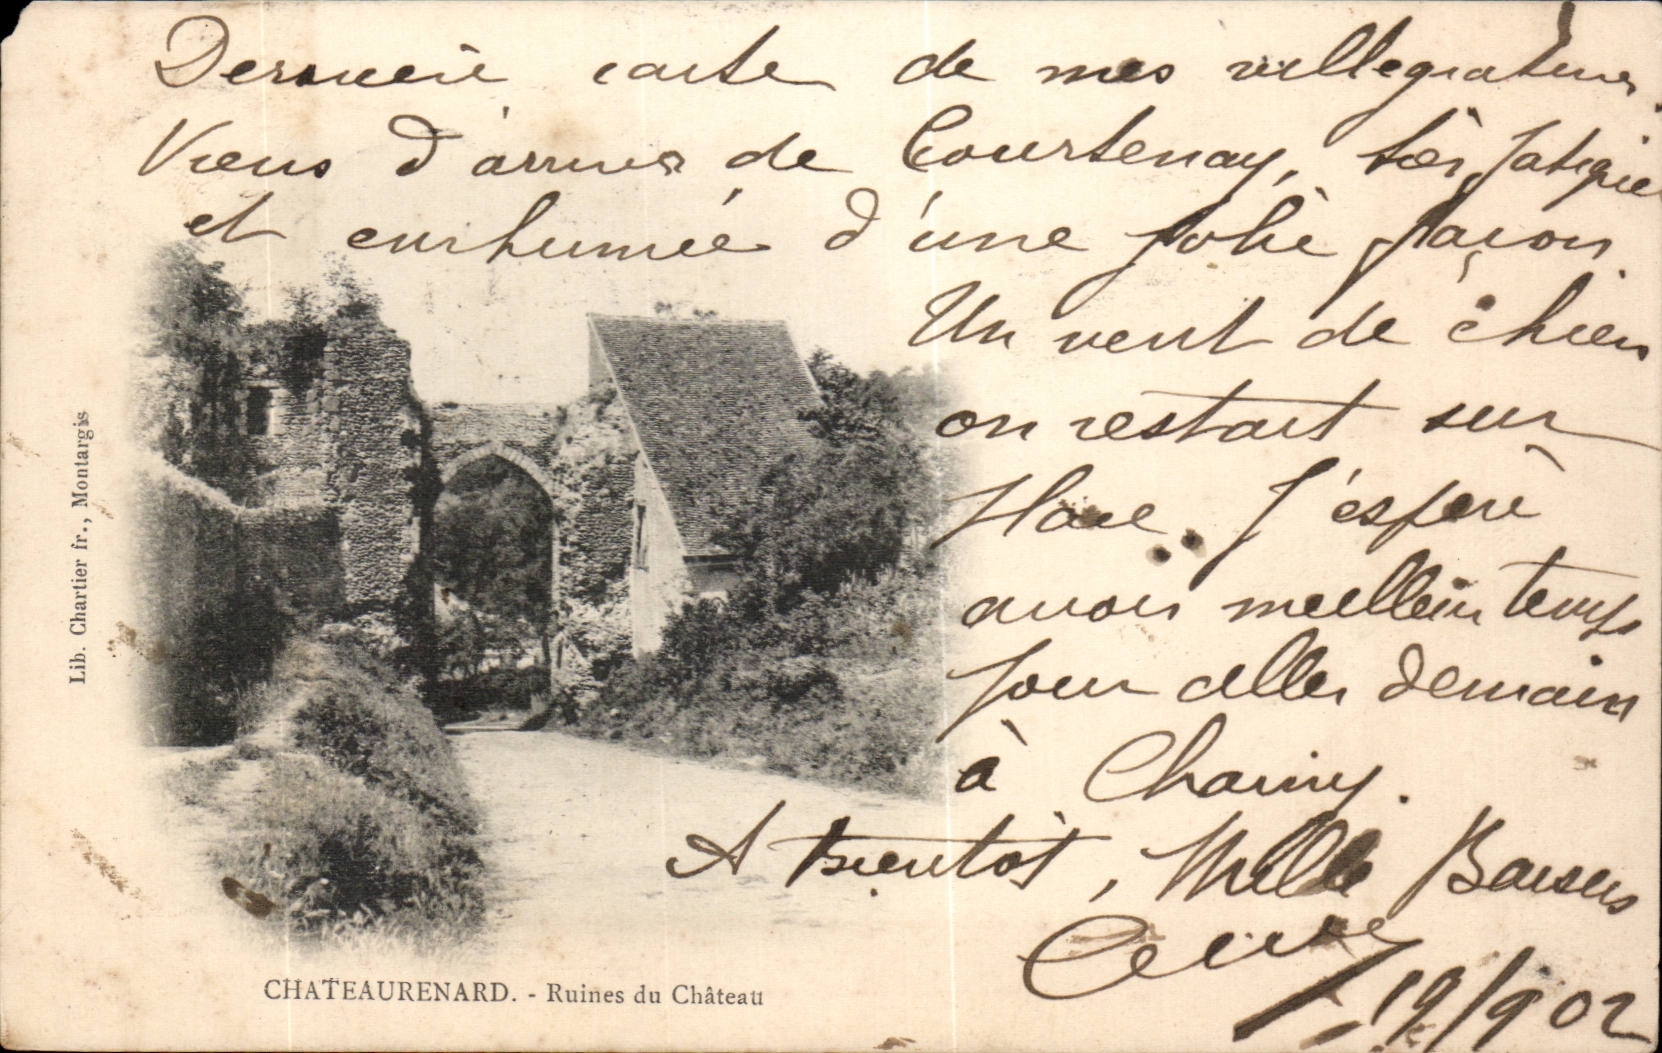 Dernière carte de mes villegiatures.
Viens d'arriver de Courtenay, très fatiguée
et enrhumée d'une jolie façon.
Un vent de chien
on restait sur
place. J'espère
avoir meilleur temps
pour aller demain
à Charny.
A bientôt, Mille Baisers
19/9 02
Lib. Chartier fr., Montargis
CHATEAURENARD. - Ruines du Château